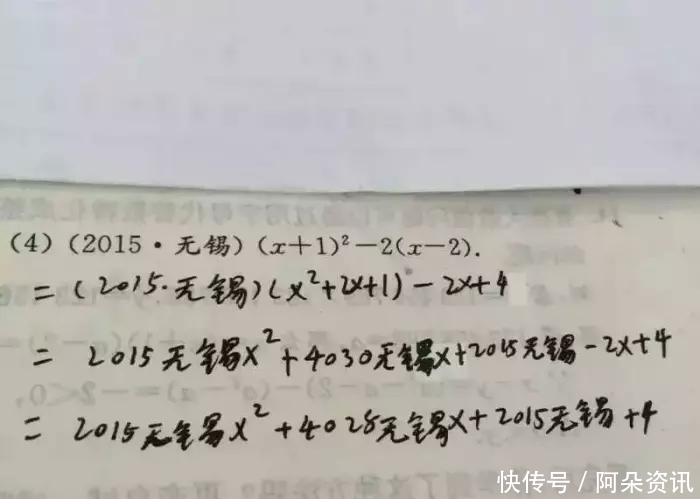 (4)(2015·无锡)(x+1)²-2(x-2).
=(2015·无锡)(x²+2x+1)-2x+4
= 2015无锡x²+4030无锡x+2015无锡-2x+4
= 2015无锡x²+4028无锡x+2015无锡+4
快传号/阿朵资讯